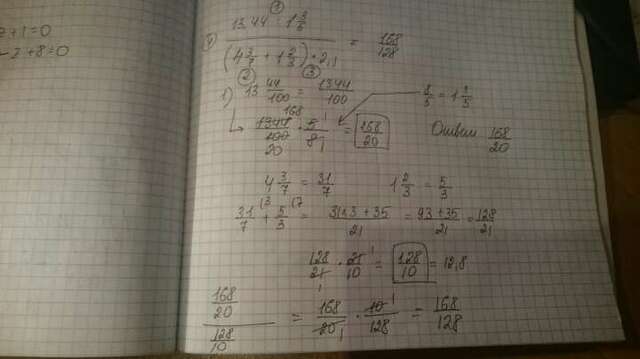 z+1=0
-z+8=0
① 13,44 : 1 3/5
(4 3/7 + 1 2/3) · 2,1 = 168/128
② ③
1) 13 44/100 = 1344/100   8/5 = 1 3/5
1344/100 · 5/8 = 168/20   168 20 1 1   Ответ 168/20
4 3/7 = 31/7   1 2/3 = 5/3
31/7 (3 + 5/3 (7 = 31·3+35/21 = 93+35/21 = 128/21
128/21 · 21/10 = 128/10 = 12,8
168/20 / 128/10 = 168/20 · 10/128 = 168/128